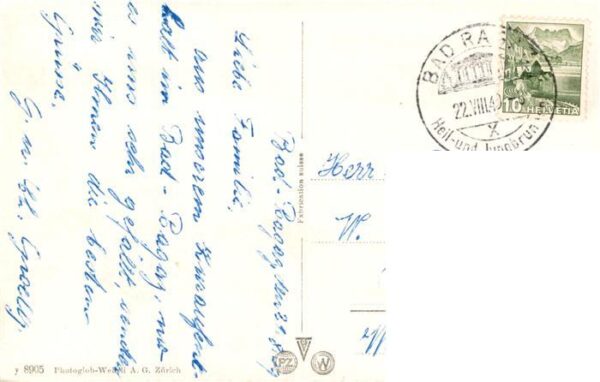 Bad-Ragaz, den 21. 8. 4
Liebe Familie.
Aus unserem Kuraufent-
halt im Bad-Ragaz, wo
es uns sehr gefällt, senden
wir Ihnen die besten
Grüsse.
G. u.
BAD RAGAZ
22.VIII.4
Heil-und Jungbrun
10 HELVETIA
Herr
W.
Fabrication suisse
PZ W
y 8905 Photoglob-Wehrli A. G. Zürich